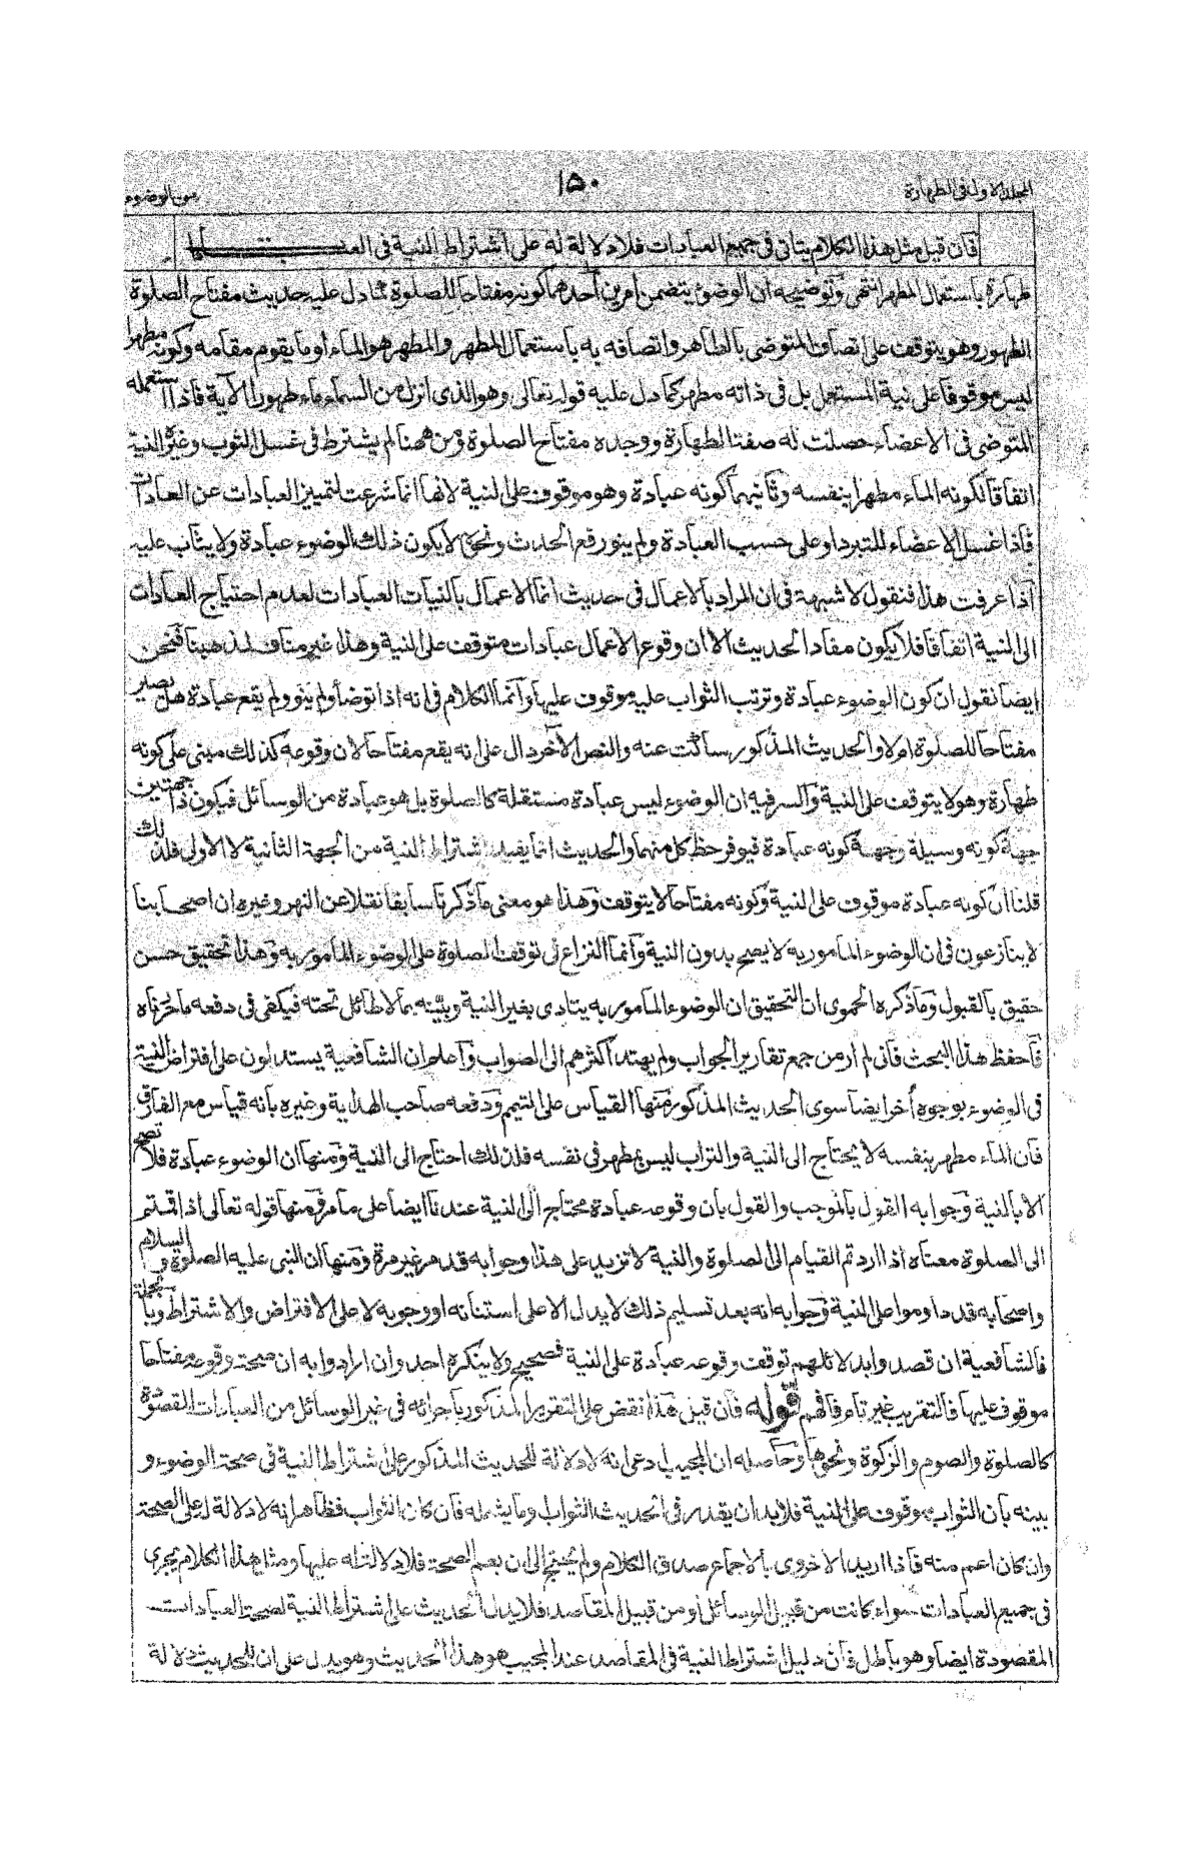 المجلد الاول فى الطهارة
١٥٠
سنن الوضوء
فان قيل مثل هذا الكلام يتاتى فى جميع العبادات فلا دلالة له على اشتراط النية فى العبادات
طهارة باستعمال المطهر انتهى وتوضيحه ان الوضوء يتضمن امرين احدهما كونه مفتاحا للصلوة كما دل عليه حديث مفتاح الصلوة
الطهور وهو يتوقف على اتصاف المتوضى بالطاهر واتصافه به باستعمال المطهر والمطهر هو الماء او ما يقوم مقامه وكونه مطهرا
ليس موقوفا على نية المستعمل بل فى ذاته مطهر كما دل عليه قوله تعالى وهو الذى انزل من السماء ماء طهورا الآية فاذا استعمله
المتوضى فى الاعضاء حصلت له صفة الطهارة ووجد مفتاح الصلوة ومن ههنا لم يشترط فى غسل الثوب وغيره النية
اتفاقا لكونه الماء مطهرا بنفسه وثانيهما كونه عبادة وهو موقوف على النية لانها انما شرعت لتمييز العبادات عن العادات
فاذا غسل الاعضاء للتبرد او على حسب العبادة ولم ينو رفع الحدث ونحوه لا يكون ذلك الوضوء عبادة ولا يثاب عليه
اذا عرفت هذا فنقول لا شبهة فى ان المراد بالاعمال فى حديث انما الاعمال بالنيات العبادات لعدم احتياج العادات
الى النية اتفاقا فلا يكون مفاد الحديث الا ان وقوع الاعمال عبادات متوقف على النية وهذا غير مناف لمذهبنا فنحن
ايضا نقول ان كون الوضوء عبادة وترتب الثواب عليه موقوف عليها وانما الكلام فى انه اذا توضأ ولم ينو ولم يقع عبادة هل يصير
مفتاحا للصلوة ام لا والحديث المذكور ساكت عنه والنص الآخر دال على انه يقع مفتاحا لان وقوعه كذلك مبنى على كونه
طهارة وهو لا يتوقف على النية والسر فيه ان الوضوء ليس عبادة مستقلة كالصلوة بل هو عبادة من الوسائل فيكون ذا جهتين
جهة كونه وسيلة وجهة كونه عبادة فيوفر حظ كل منهما والحديث انما يفيد اشتراط النية من الجهة الثانية لا الاولى فلذلك
قلنا ان كونه عبادة موقوف على النية وكونه مفتاحا لا يتوقف وهذا هو معنى ما ذكرنا سابقا نقلا عن النهر وغيره ان اصحابنا
لا ينازعون فى ان الوضوء المامور به لا يصح بدون النية وانما النزاع فى توقف الصلوة على الوضوء المامور به وهذا تحقيق حسن
حقيق بالقبول وما ذكره الحموى ان التحقيق ان الوضوء المامور به يتادى بغير النية وبيّنه بما لا طائل تحته فيكفى فى دفعه ما حررناه
فاحفظ هذا البحث فانى لم ار من جمع تقارير الجواب ولم يهتد اكثرهم الى الصواب واعلم ان الشافعية يستدلون على افتراض النية
فى الوضوء بوجوه أخر ايضا سوى الحديث المذكور منها القياس على التيمم ودفعه صاحب الهداية وغيره بانه قياس مع الفارق
فان الماء مطهر بنفسه لا يحتاج الى النية والتراب ليس بمطهر فى نفسه فلذلك احتاج الى النية ومنها ان الوضوء عبادة فلا تصح
الا بالنية وجوابه القول بالموجب والقول بان وقوعه عبادة محتاج الى النية عندنا ايضا على ما مر ومنها قوله تعالى اذا قمتم
الى الصلوة معناه اذا اردتم القيام الى الصلوة والنية لا تزيد على هذا وجوابه قد مر غير مرة ومنها ان النبى عليه الصلوة والسلام
واصحابه قد داوموا على النية وجوابه انه بعد تسليم ذلك لا يدل الا على استنانه او وجوبه لا على الافتراض والاشتراط وبالجملة
فالشافعية ان قصدوا بدلائلهم توقف وقوعه عبادة على النية فصحيح ولا ينكره احد وان ارادوا به ان صحته وقوعه مفتاحا
موقوف عليها فالتقريب غير تام فافهم قوله فان قيل هذا نقض على التقرير المذكور باجرائه فى غير الوسائل من العبادات المقصودة
كالصلوة والصوم والزكوة ونحوها وحاصله ان المجيب ادعى انه لا دلالة للحديث المذكور على اشتراط النية فى صحة الوضوء و
بينه بان الثواب موقوف على النية فلا بد ان يقدر فى الحديث الثواب وما يشمله فان كان الثواب فظاهر انه لا دلالة له على الصحة
وان كان اعم منه فاذا اريد الاخروى بالاجماع صدق الكلام ولم يحتج الى ان يعم الصحة فلا دلالة له عليها ومثل هذا الكلام يجرى
فى جميع العبادات سواء كانت من قبيل الوسائل او من قبيل المقاصد فلا يدل الحديث على اشتراط النية لصحة العبادات
المقصودة ايضا وهو باطل فان دليل اشتراط النية فى المقاصد عند المجيب هو هذا الحديث وهو يدل على ان للحديث دلالة